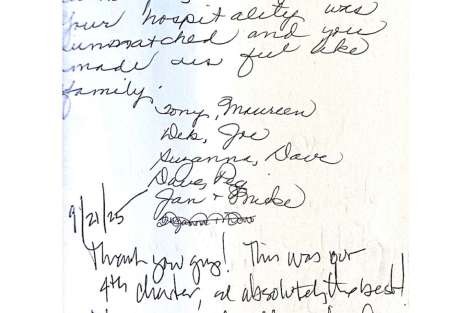 Your hospitality was
unmatched and you
made us feel like
family.
Tony, Maureen
Deb, Joe
Suzanna, Dave
Dave, Peg
Jan + Mike
9/21/25
Thank you guys! This was our
4th charter, and absolutely the best!